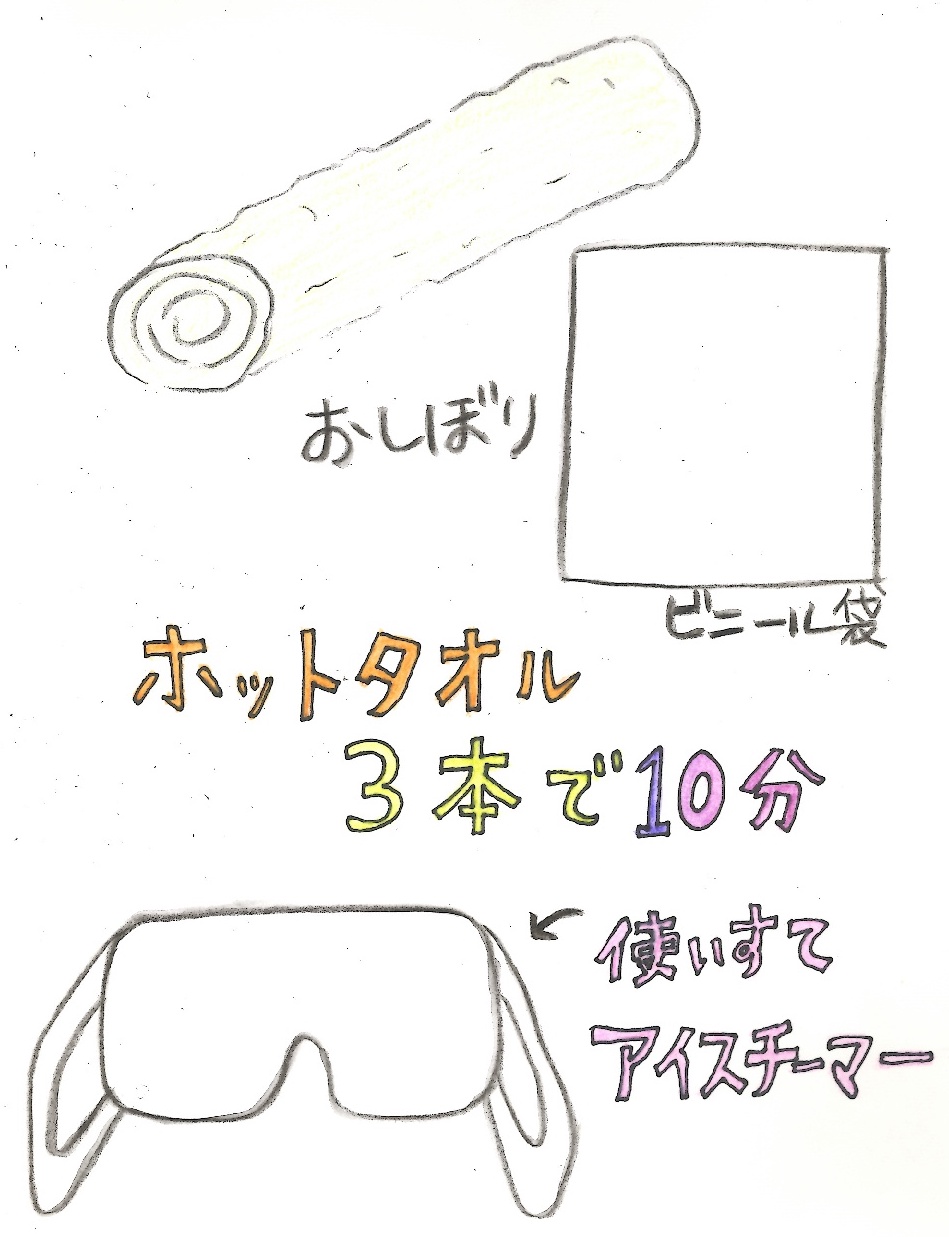 おしぼり
ビニール袋
ホットタオル
3本で10分
使いすて
アイスチーマー